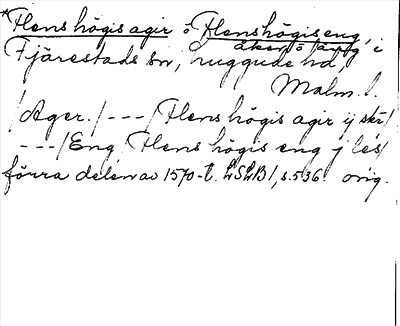 *Flenshögis agir o Flenshögis eng,
åker o äng i
Fjärestads sn, Luggude hd,
Malm. l.
/Ager./ --- /Flens högis agir ij skr/
---/Eng Flens högis eng j les/
förra delen av 1570-t. LSLB1, s. 536. orig.